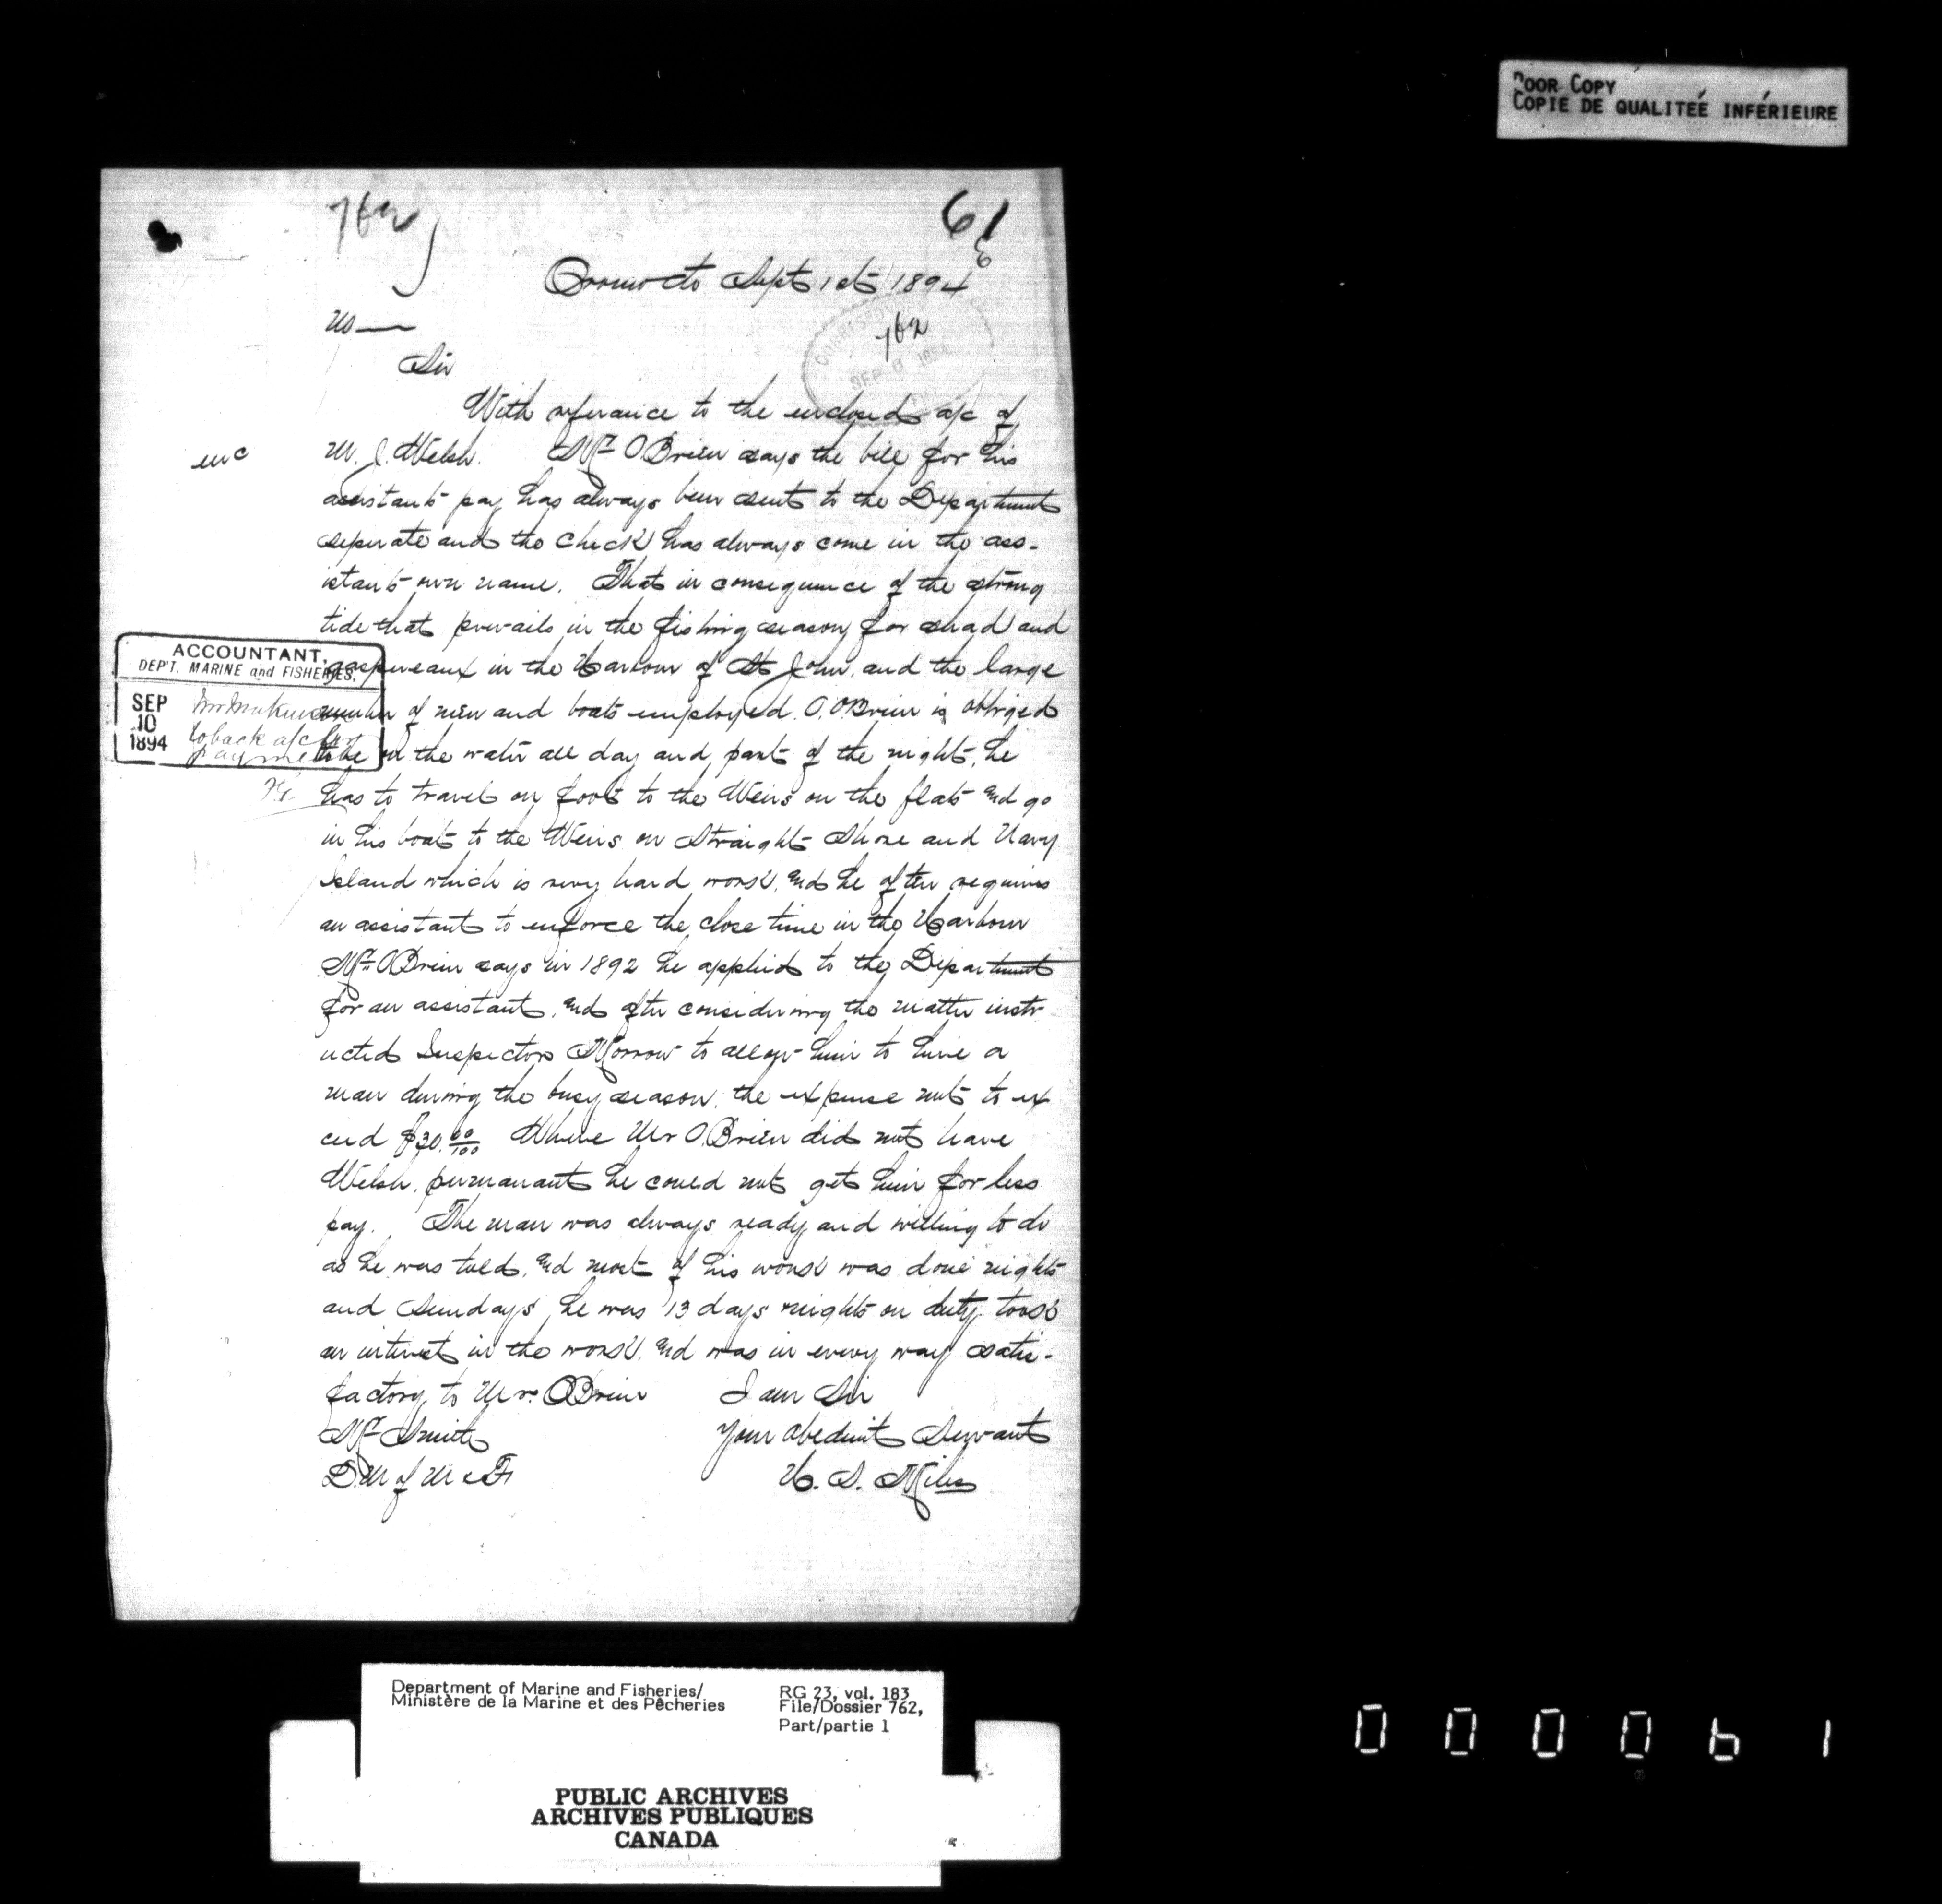 POOR COPY
COPIE DE QUALITEÉ INFÉRIEURE
762
61
6
Oromocto Sept 1st 1894
No —
762
CORRESPO
SEP 8 1894
Sir
With referance to the enclosed a/c of
enc
M. J. Welsh. Mr O'Brien says the bill for his
assistants pay has always been sent to the Department
seperate and the check has always come in the ass-
istants own name. That in consequence of the strong
tide that prevails in the fishing season for shad and
gaspereaux in the Harbour of St John, and the large
number of men and boats employed. O. O'Brien is obliged
to be on the water all day and part of the night, he
has to travel on foot to the Weirs on the flats and go
in his boat to the Weirs on Straight Shore and Navy
Island which is very hard work, and he often requires
an assistant to enforce the close time in the Harbour
Mr O'Brien says in 1892 he applied to the Department
for an assistant, and after considering the matter instr-
ucted Inspector Morrow to allow him to hire a
man during the busy season, the expense not to ex
ceed $30.00/100 Where Mr O.Brien did not have
Welsh, permanant he could not get him for less
pay. The man was always ready and willing to do
as he was told, and most of his work was done nights
and Sundays, he was 13 days nights on duty took
an interest in the work, and was in every way satis-
factory to Mr. O'Brien I am Sir
Mr Smith Your Obedient Servant
D.M of M & F H. S. Miles
ACCOUNTANT,
DEP'T. MARINE and FISHERIES.
SEP
10
1894
to back a/c for
payment
Department of Marine and Fisheries/
Ministère de la Marine et des Pêcheries
RG 23, vol. 183
File/Dossier 762,
Part/partie 1
PUBLIC ARCHIVES
ARCHIVES PUBLIQUES
CANADA
000061